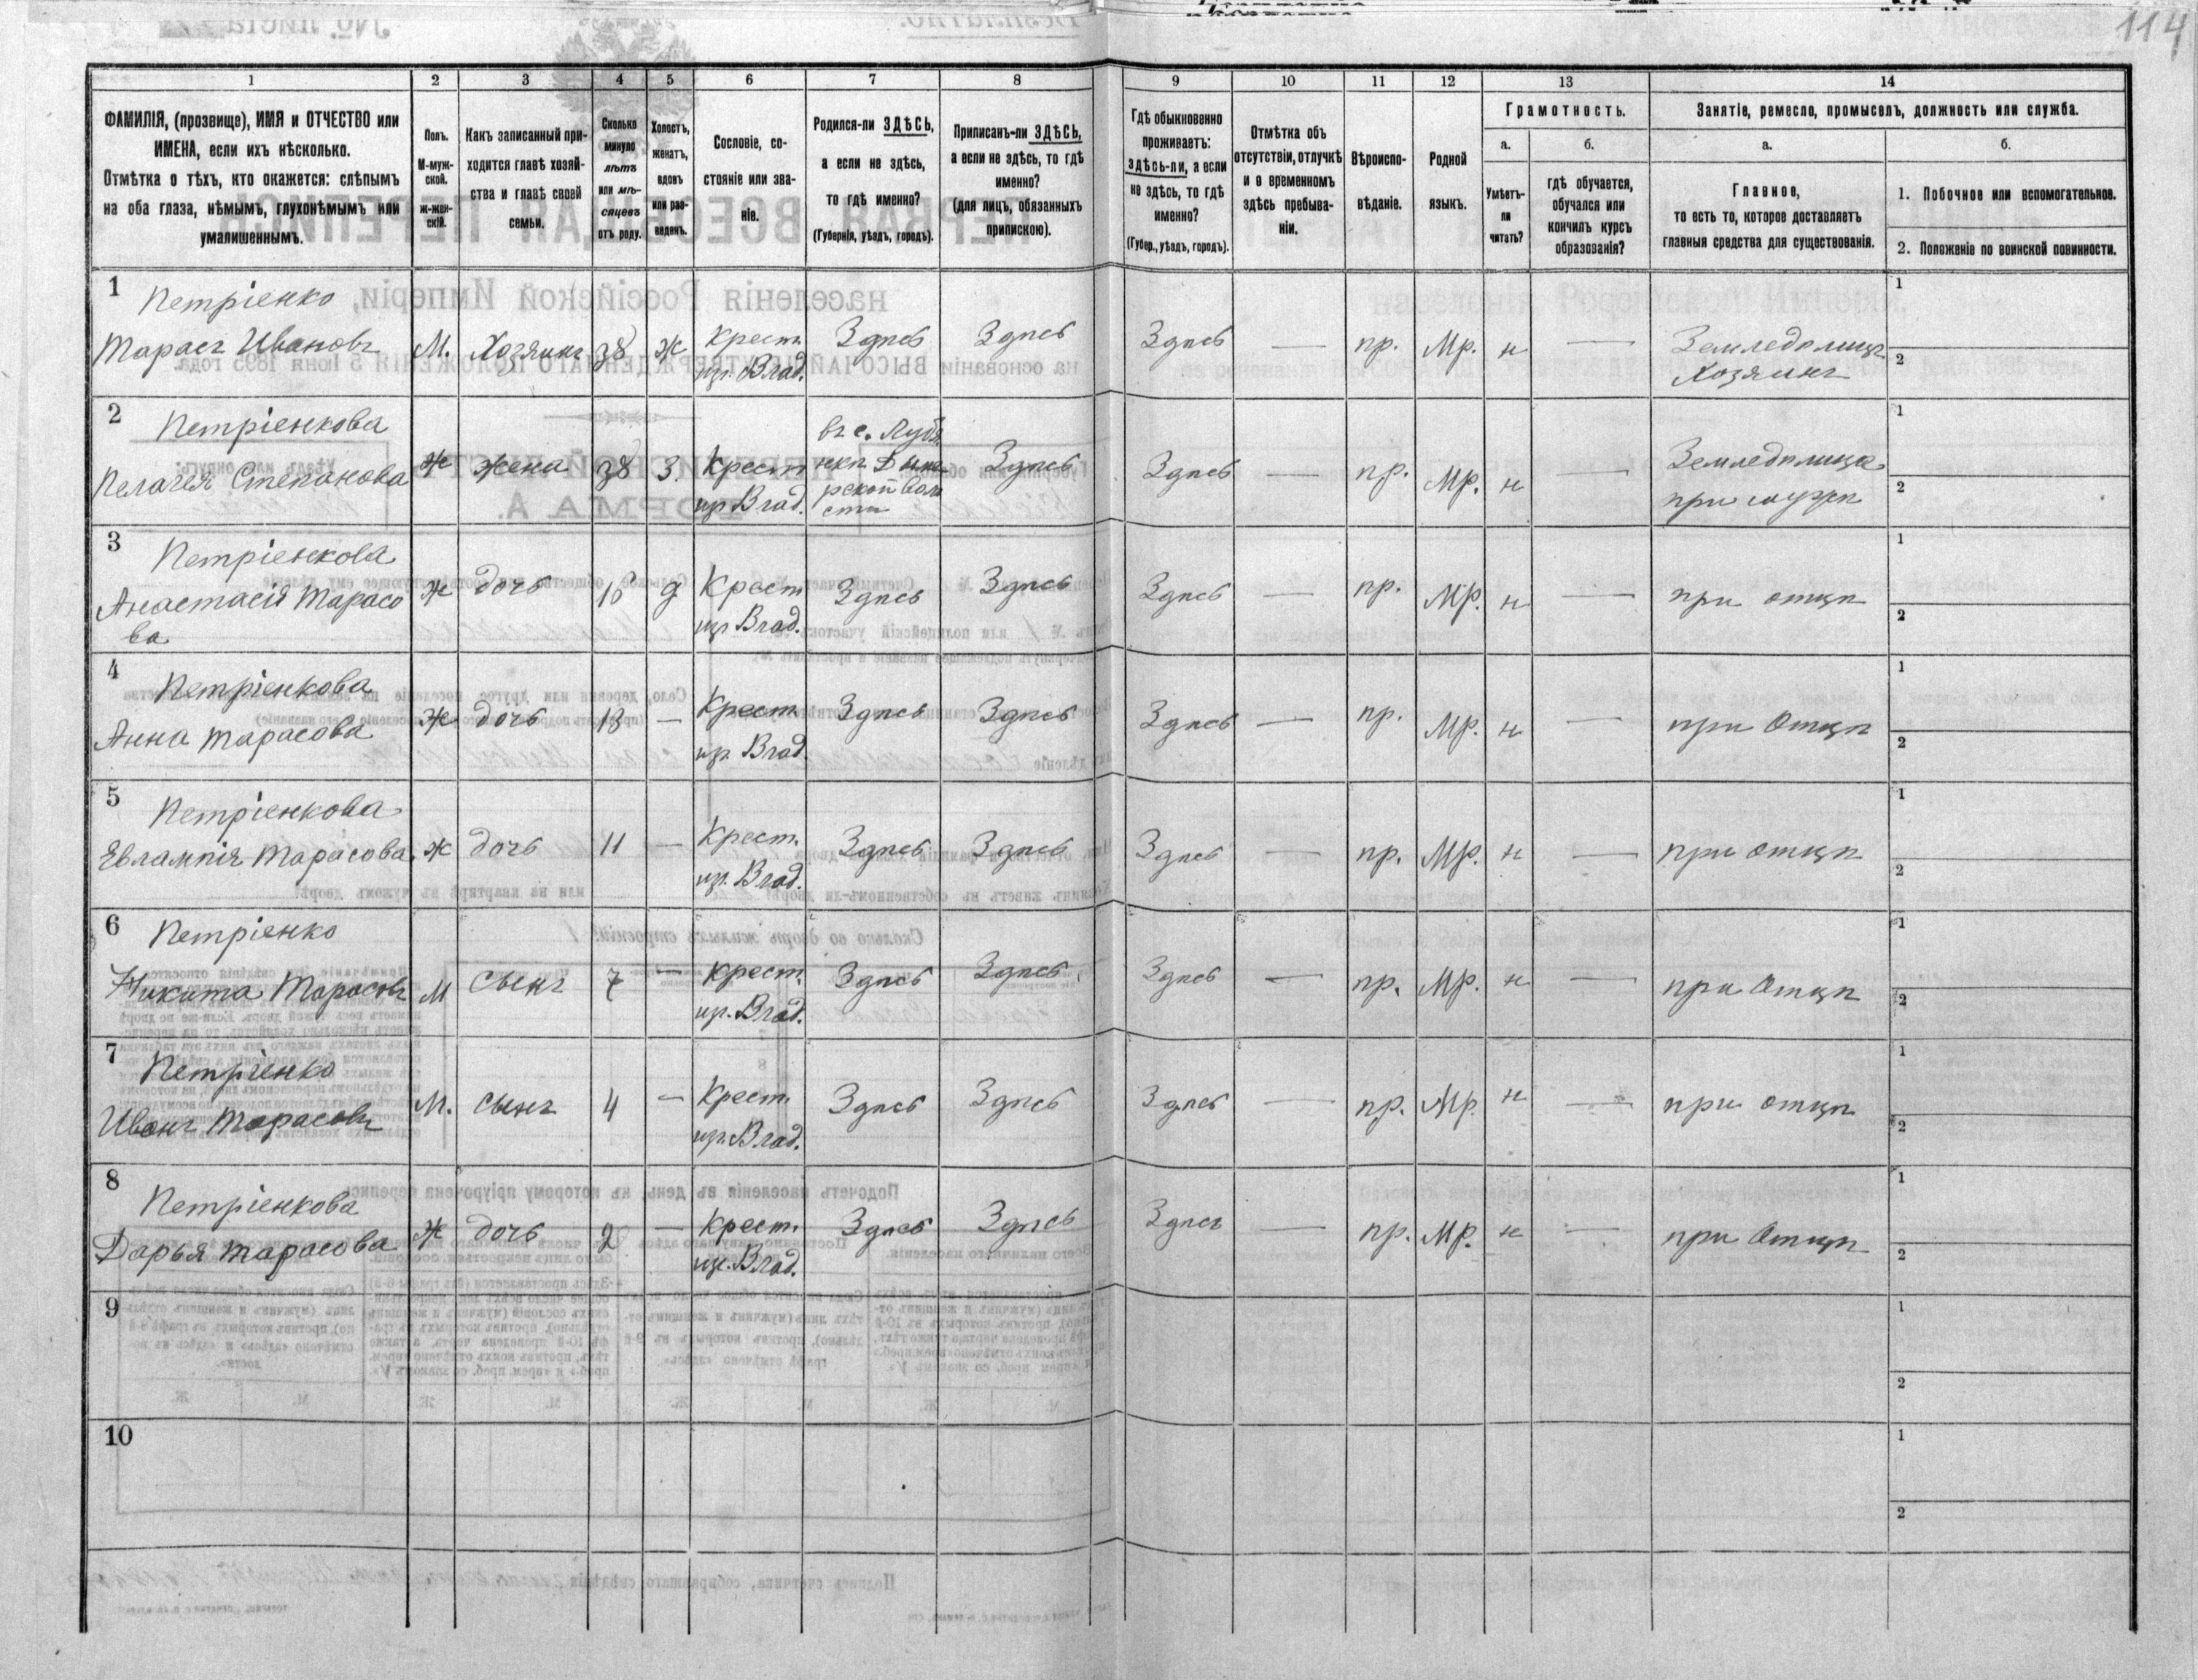 114
1 2 3 4 5 6 7 8 9 10 11 12 13 14
ФАМИЛІЯ, (прозвище), ИМЯ и ОТЧЕСТВО или
ИМЕНА, если ихъ нѣсколько.
Отмѣтка о тѣхъ, кто окажется: слѣпымъ
на оба глаза, нѣмымъ, глухонѣмымъ или
умалишеннымъ.
Полъ.
М-муж-
ской.
Ж-жен-
скій.
Какъ записанный при-
ходится главѣ хозяй-
ства и главѣ своей
семьи.
Сколько
минуло
лѣтъ
или мѣ-
сяцевъ
отъ роду.
Холостъ,
женатъ,
вдовъ
или раз-
веденъ.
Сословіе, со-
стояніе или зва-
ніе.
Родился-ли ЗДѢСЬ,
а если не здѣсь,
то гдѣ именно?
(Губернія, уѣздъ, городъ).
Приписанъ-ли ЗДѢСЬ,
а если не здѣсь, то гдѣ
именно?
(для лицъ, обязанныхъ
припискою).
Гдѣ обыкновенно
проживаетъ:
здѣсь-ли, а если
не здѣсь, то гдѣ
именно?
(Губер., уѣздъ, городъ).
Отмѣтка объ
отсутствіи, отлучкѣ
и о временномъ
здѣсь пребыва-
ніи.
Вѣроиспо-
вѣданіе.
Родной
языкъ.
Грамотность.
а.
Умѣетъ-
ли
читать?
б.
гдѣ обучается,
обучался или
кончилъ курсъ
образованія?
Занятіе, ремесло, промыселъ, должность или служба.
а.
Главное,
то есть то, которое доставляетъ
главныя средства для существованія.
б.
1. Побочное или вспомогательное.
2. Положеніе по воинской повинности.
1 Петріенко
Тарасъ Ивановъ М. Хозяинъ 38 Ж Крест. Здѣсь Здѣсь Здѣсь — пр. Мр. н — Земледѣлецъ
из. Влад. Хозяинъ
1
2
2 Петріенкова
Пелагея Степанова Ж жена 38 З. Крест из Влад. въ с. Лубя Здѣсь Здѣсь пр. Мр. н — Земледѣлица
сти при мужѣ
1
2
3 Петріенкова
Анастасія Тарасо Ж дочь 16 д Крест Здѣсь Здѣсь Здѣсь — пр. Мр. н — при отцѣ
ва из Влад.
1
2
4 Петріенкова
Анна Тарасова Ж дочь 13 — Крест Здѣсь Здѣсь Здѣсь — пр. Мр. н — при Отцѣ
из. Влад.
1
2
5 Петріенкова
Евлампія Тарасова Ж дочь 11 — Крест. Здѣсь Здѣсь Здѣсь — пр. Мр. н — при отцѣ
из. Влад.
1
2
6 Петріенко
Никита Тарасовъ М сынъ 7 — Крест. Здѣсь Здѣсь Здѣсь — пр. Мр. н — при Отцѣ
из. Влад.
1
2
7 Петріенко
Иванъ Тарасовъ М. сынъ 4 — Крест. Здѣсь Здѣсь Здѣсь — пр. Мр. н — при отцѣ
из. Влад.
1
2
8 Петріенкова
Дарья Тарасова Ж дочь 2 — Крест. Здѣсь Здѣсь Здѣсь — пр. Мр. н — при Отцѣ
из. Влад.
1
2
9
1
2
10
1
2